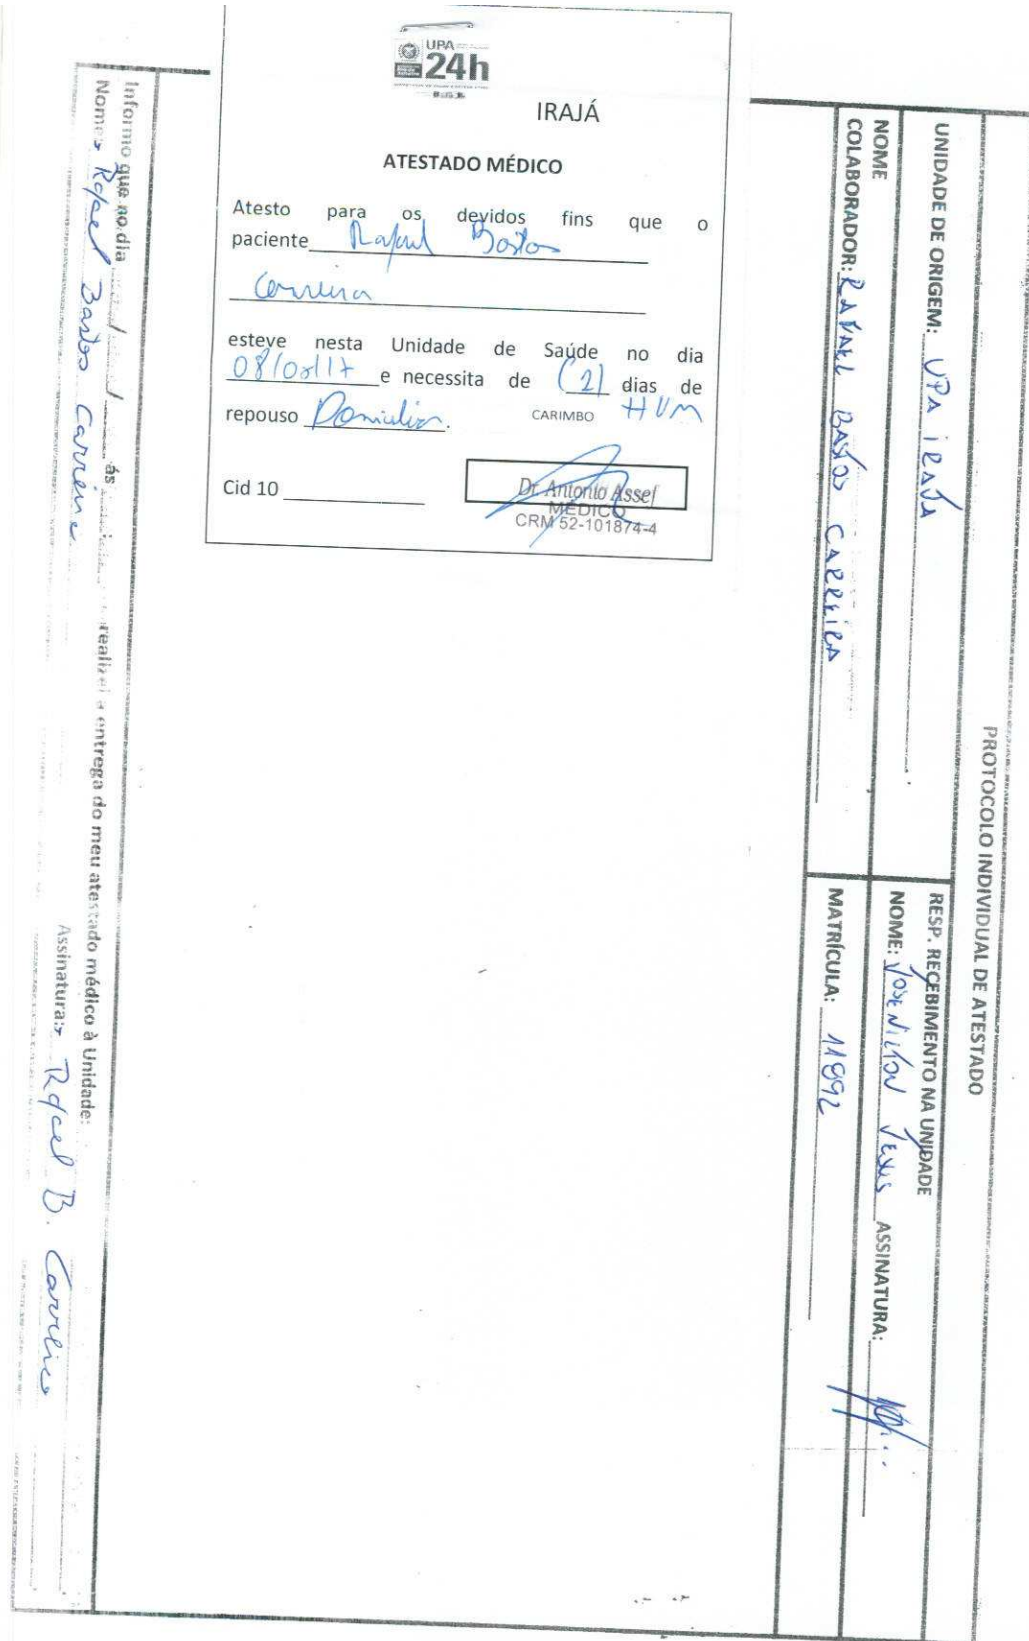 UPA
24h
IRAJÁ
ATESTADO MÉDICO
Atesto para os devidos fins que o
paciente Rafael Bastos
Carreira
esteve nesta Unidade de Saúde no dia
08/05/17 e necessita de (2) dias de
repouso Domiciliar. CARIMBO HUM
Cid 10
Dr. Antonio Assef
MÉDICO
CRM 52-101874-4
PROTOCOLO INDIVIDUAL DE ATESTADO
UNIDADE DE ORIGEM: UPA IRAJA
RESP. RECEBIMENTO NA UNIDADE
NOME: JOSENILTON JESUS ASSINATURA:
NOME
COLABORADOR: RAFAEL BASTOS CARREIRA
MATRÍCULA: 11892
Informo que no dia / / ás realizei a entrega do meu atestado médico à Unidade:
Nome: Rafael Bastos Carreira Assinatura: Rafael B. Carreira